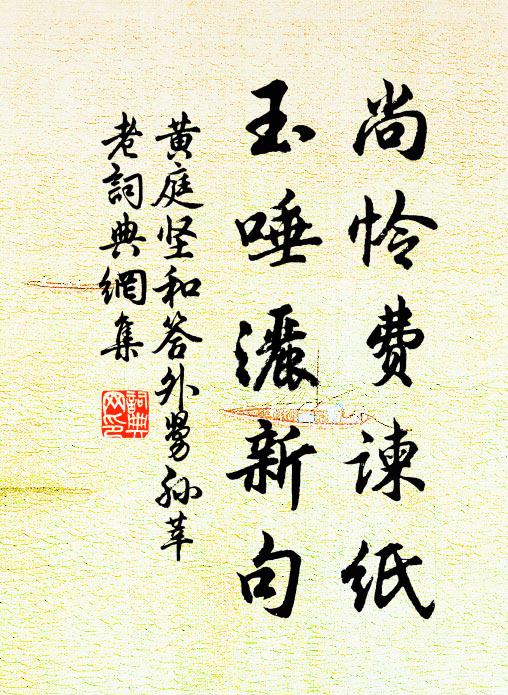 尚怜费谏纸
玉唾灑新句
黄庭坚和答外舅孙莘
老詞典網集
詞典网印